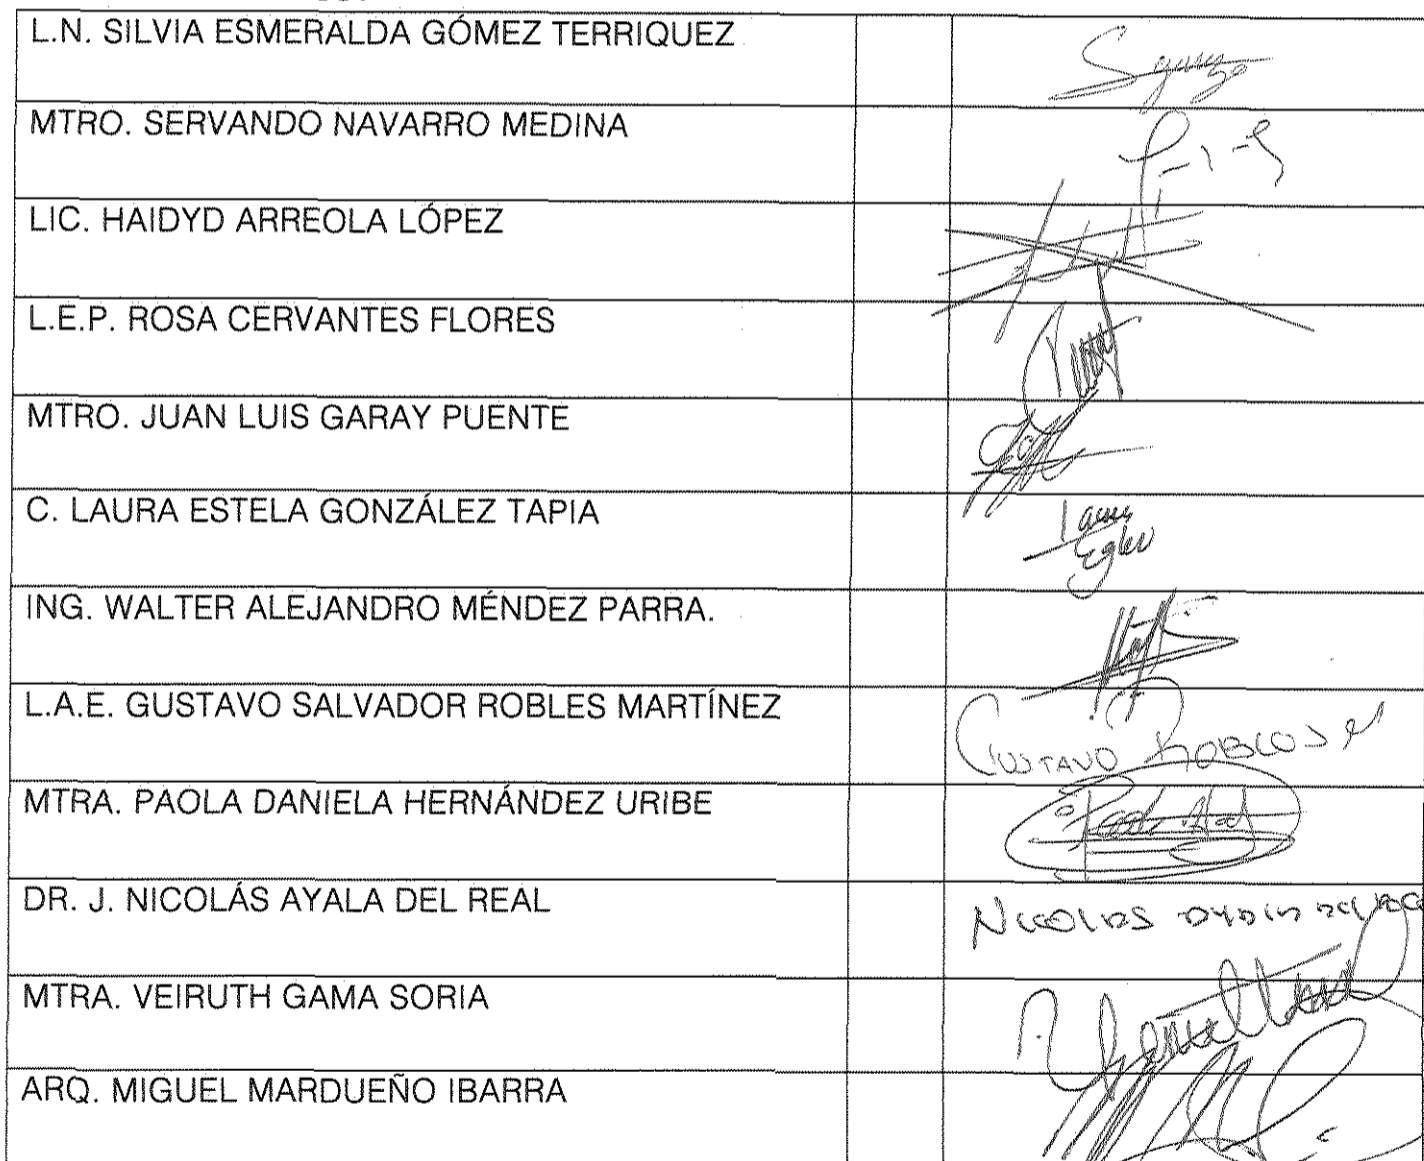 L.N. SILVIA ESMERALDA GÓMEZ TERRIQUEZ
MTRO. SERVANDO NAVARRO MEDINA
LIC. HAIDYD ARREOLA LÓPEZ
L.E.P. ROSA CERVANTES FLORES
MTRO. JUAN LUIS GARAY PUENTE
C. LAURA ESTELA GONZÁLEZ TAPIA
ING. WALTER ALEJANDRO MÉNDEZ PARRA.
L.A.E. GUSTAVO SALVADOR ROBLES MARTÍNEZ
GUSTAVO ROBLES M
MTRA. PAOLA DANIELA HERNÁNDEZ URIBE
DR. J. NICOLÁS AYALA DEL REAL
NICOLAS AYALA DEL
MTRA. VEIRUTH GAMA SORIA
ARQ. MIGUEL MARDUEÑO IBARRA